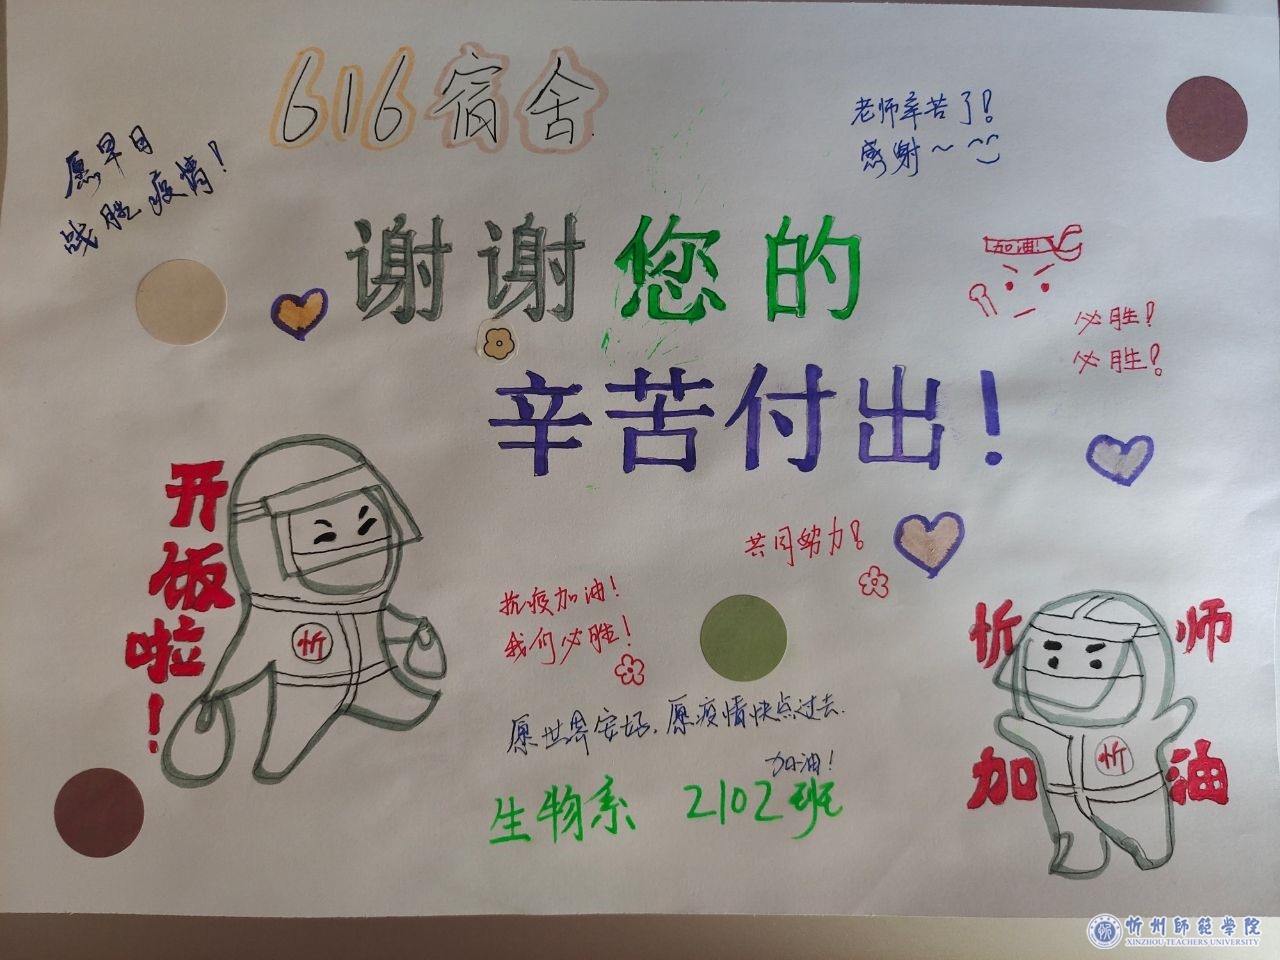 616宿舍
愿早日
战胜疫情!
老师辛苦了!
感谢~
谢谢您的
辛苦付出!
加油!
必胜!
必胜!
开饭啦!
忻
共同努力!
抗疫加油!
我们必胜!
忻师
加油
忻
愿世界安好,愿疫情快点过去.
加油!
生物系 2102班
忻州師範學院
XINZHOU TEACHERS UNIVERSITY